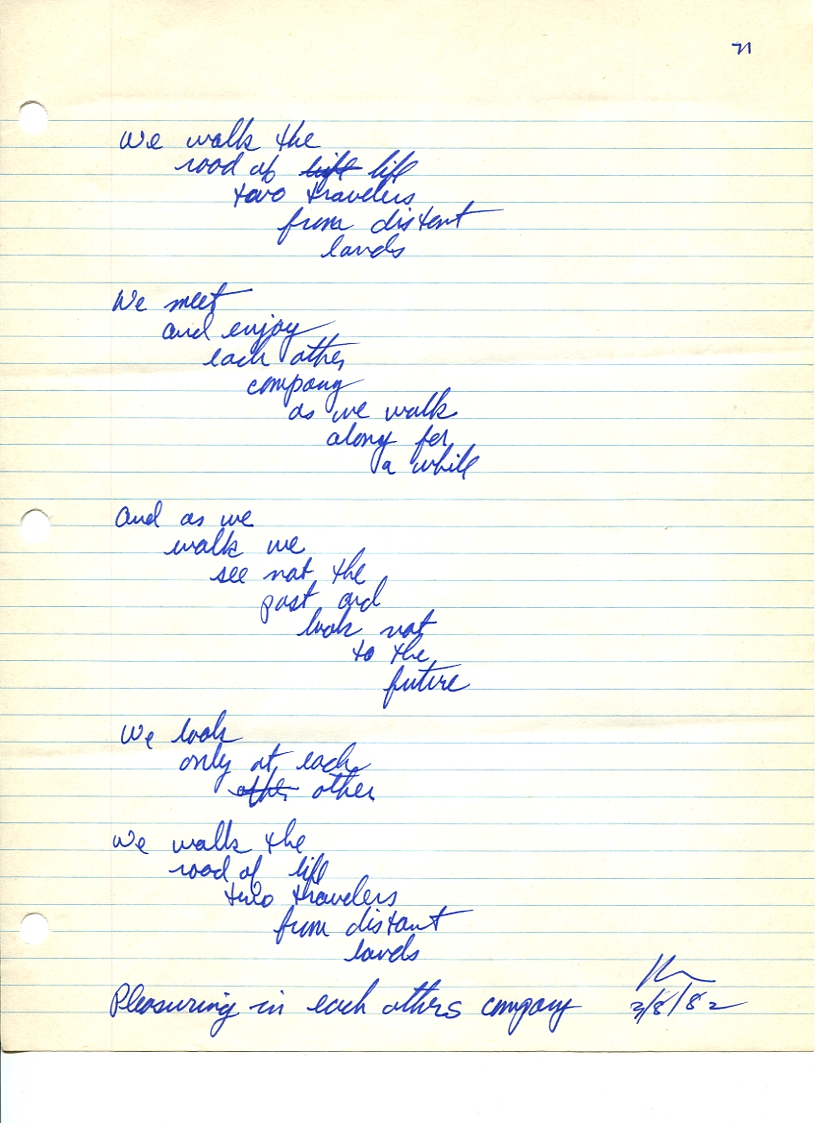 71
We walk the
road of life life
two travelers
from distent
lands
We meet
and enjoy
each other
company
as we walk
along for
a while
And as we
walk we
see not the
past and
look not
to the
future
We look
only at each
other other
We walk the
road of life
two travelers
from distant
lands
Pleasuring in each others company
3/8/82